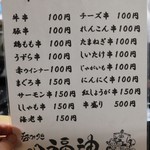 牛串 100円
豚串 100円
鶏もも串 100円
うずら串 100円
赤ウインナー 100円
まぐろ串 150円
サーモン串 150円
ししゃも串 150円
海老串 150円
チーズ串 100円
れんこん串 100円
たまねぎ串 100円
しいたけ串 100円
じゃがいも串 100円
にんにく串 100円
紅しょうが串 150円
串盛り 500円
福の神